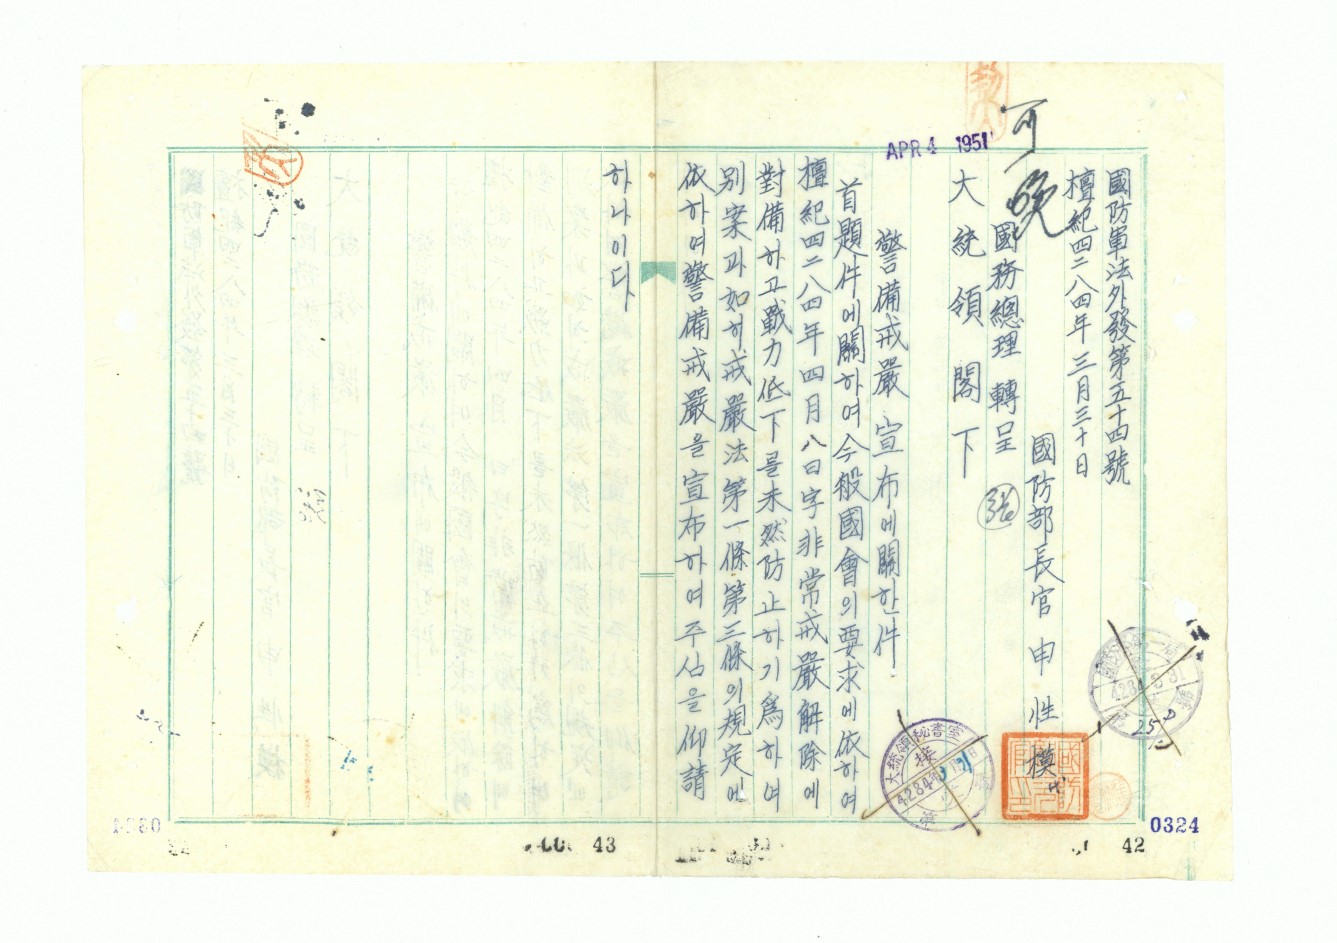 國防軍法外發第五十四號
檀紀四二八四年三月三十日
國防部長官 申性模
可
晩
國務總理 轉呈
大統領閣下
APR 4 1951
警備戒嚴宣布에關한件
首題件에關하여今般國會의要求에依하여
檀紀四二八四年四月八日字非常戒嚴解除에
對備하고戰力低下를未然防止하기爲하여
別案과如히戒嚴法第一條第三條의規定에
依하여警備戒嚴을宣布하여주심을仰請
하나이다
大統領秘書室
接
4284
第 號
4284
0324
42
43